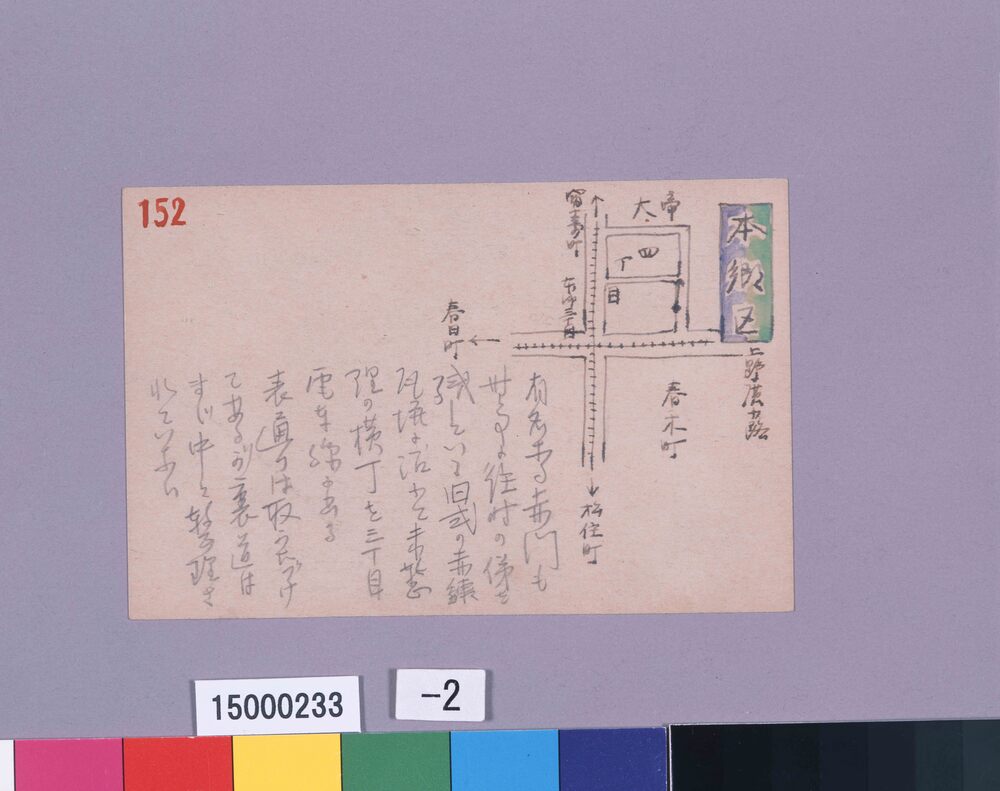 152
本郷区
帝大
四丁目
富士前町
本郷三丁目
春日町
上野広小路
春木町
松住町
有名な赤門も
昔に往時の俤を
残している旧式の赤錬
瓦塀に沿って未整
理の横丁を三丁目
電車弥に出る
表通りは取りかたづけ
てあるが裏道は
まだ中々整理さ
れていない
15000233
-2